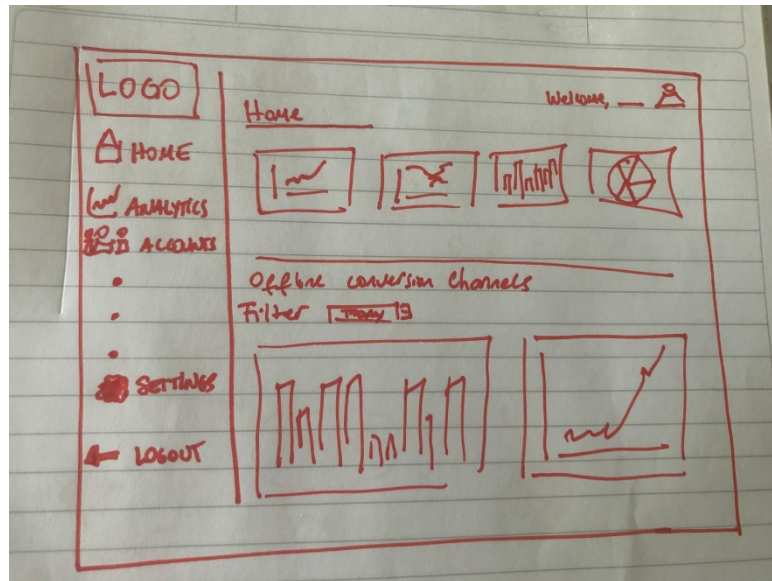 LOGO
HOME
ANALYTICS
ACCOUNTS
SETTINGS
LOGOUT
Welcome, __
Home
Offline conversion Channels
Filter